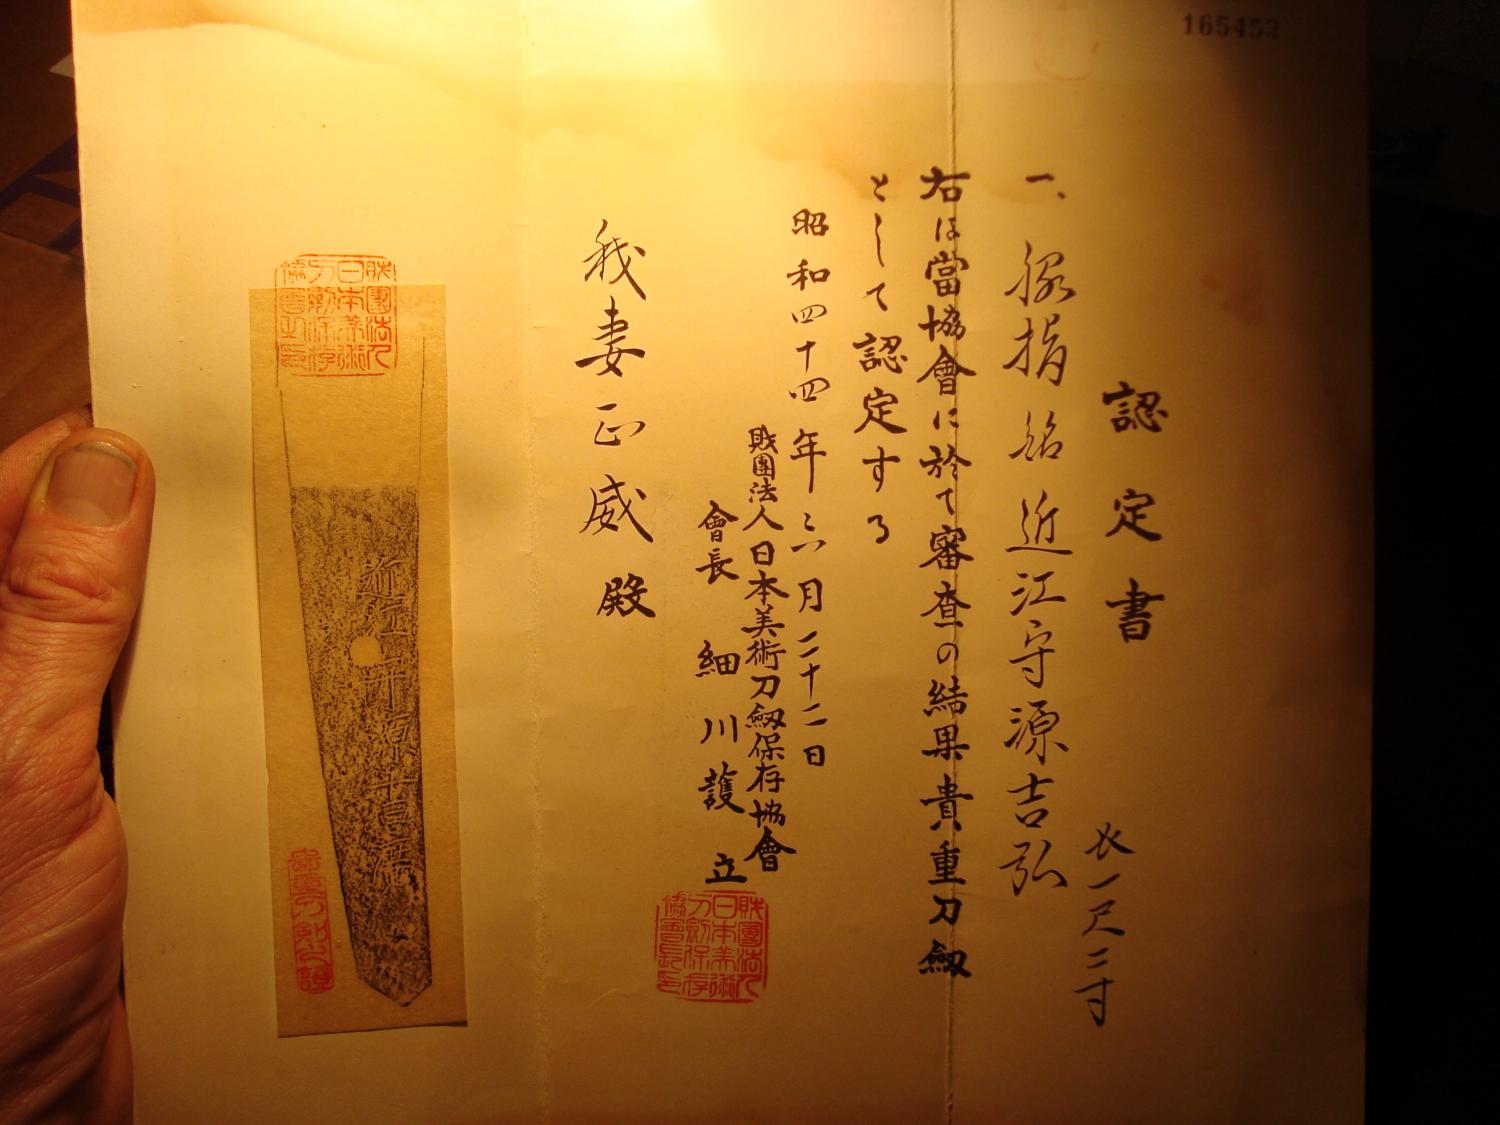 165453
認定書
一、脇指 銘 近江守源吉弘
長一尺二寸
右は當協會に於て審査の結果貴重刀劔
として認定する
昭和四十四年 月二十二日
財團法人日本美術刀劔保存協會
會長 細川護立
我妻正威殿
財團法人
日本美術
刀劍保存
協會長印
財團法人
日本美術
刀劍保存
協會之印
近江守源吉弘